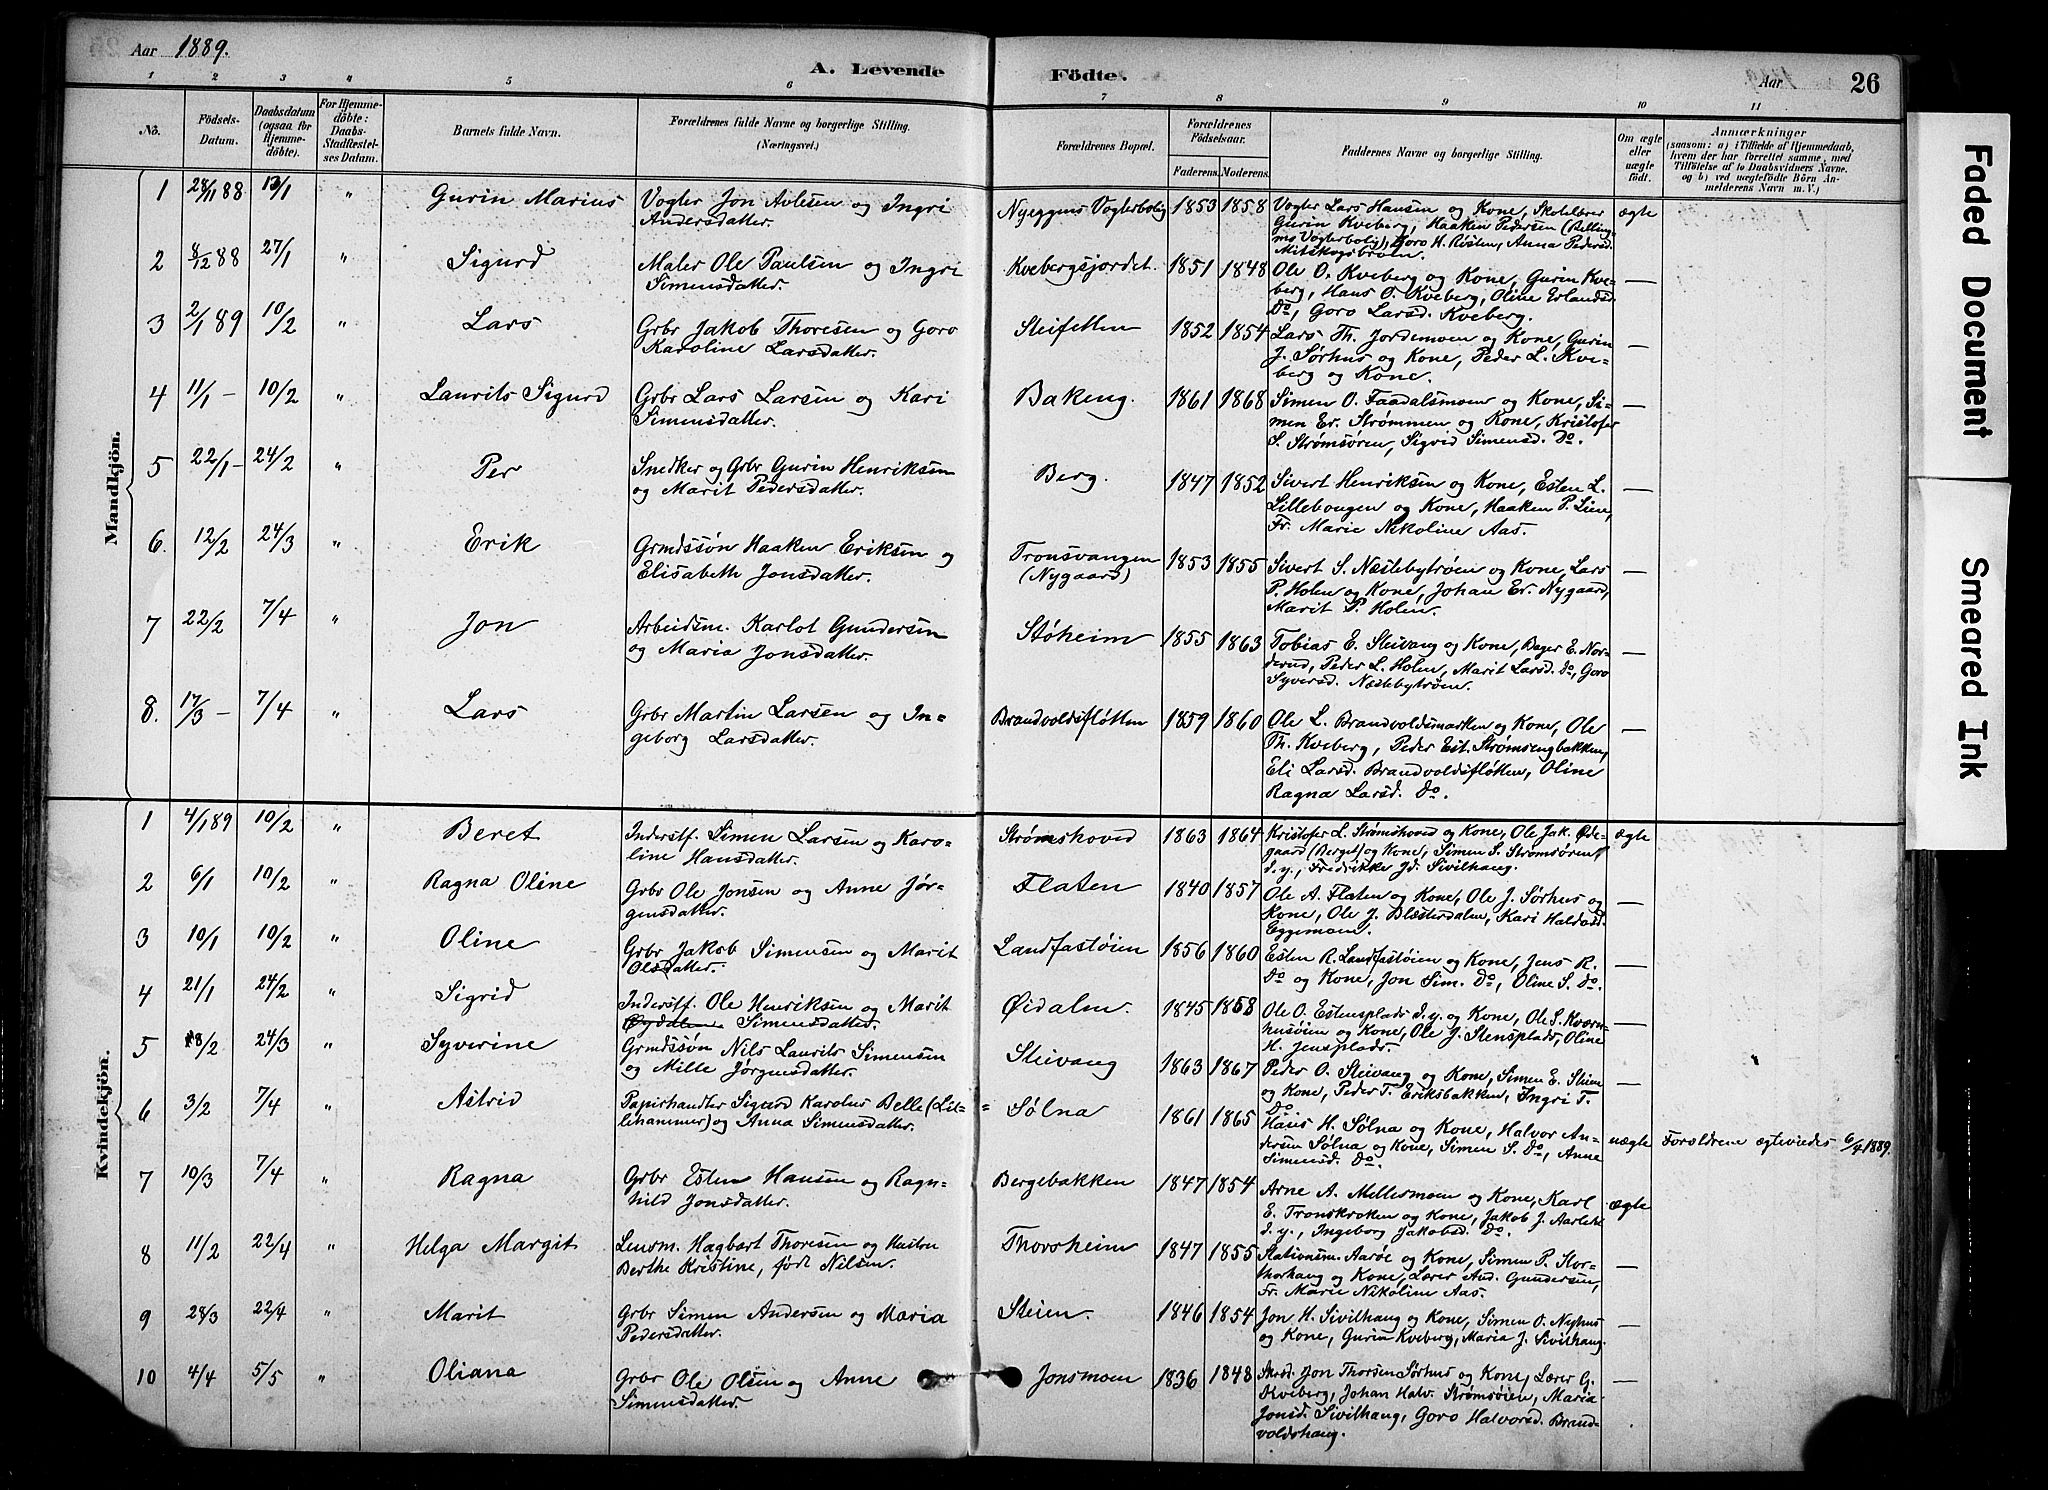 Aar 1889.
A. Levende Födte.
Aar
26
1 2 3 " 5 6 7 8 9 10 11
No.
Födsels-Datum.
Daabsdatum (ogsaa for Hjemmedöbte).
For Hjemmedöbte: Daabs-Stadfæstelses Datum.
Barnets fulde Navn.
Forældrenes fulde Navne og borgerlige Stilling. (Næringsvei.)
Forældrenes Bopæl.
Forældrenes Födselsaar.
Faderens. Moderens.
Faddernes Navne og borgerlige Stilling.
Om ægte eller uægte födt.
Anmærkninger
(saasom: a) i Tilfælde af Hjemmedaab, hvem der har forrettet samme, med Tilföielse af to Daabsvidners Navne, og b) ved uægtefödte Börn Anmelderens Navn m. V.)
Mandkjön.
1 28/11 88 13/1 " Gurin Marius
Vogter Jon Avlesen og Ingri
Andersdatter.
Nyeggens Vogterbolig 1853 1858
Vogter Lars Hansen og Kone, Skolelærer
Gurin Kveberg, Haaken Pedersen (Belling-
mo Vogterbolig), Goro H. Risten, Anna Pedersd.
Mitskogsbroen.
ægte
2 8/12 88 27/1 " Sigurd
Maler Ole Paulsen og Ingri
Simensdatter.
Kvebergsjordet. 1851 1848
Ole O. Kveberg og Kone, Gurin Kve-
berg, Hans O. Kveberg, Oline Erlandsd.
Do, Goro Larsd. Kveberg.
—
3 2/1 89 10/2 " Lars
Grbr Jakob Thoresen og Goro
Karoline Larsdatter.
Steifetten 1852 1854
Lars Th. Jordemoen og Kone, Gurin
J. Sørhus og Kone, Peder L. Kve-
berg og Kone.
—
4 11/1 - 10/2 " Laurits Sigurd
Grbr Lars Larsen og Kari
Simensdatter.
Bakeng. 1861 1868
Simen O. Faadalsmoen og Kone, Si-
men Er. Strømmen og Kone, Kristofer
S. Strømsøren, Sigrid Simensd. Do.
—
5 22/1 - 24/2 " Per
Snedker og Grbr Gurin Henriksen
og Marit Pedersdatter.
Berg. 1847 1852
Sivert Henriksen og Kone, Esten L.
Lillebougen og Kone, Haaken P. Lien,
Fr. Marie Nikoline Aas.
—
6. 12/2 24/3 " Erik
Grmdssøn Haaken Eriksen og
Elisabeth Jonsdatter.
Tronsvangen
(Nygaard)
1853 1855
Sivert S. Næstebytrøen og Kone, Lars
P. Holen og Kone, Johan Er. Nygaard,
Marit P. Holen.
—
7 22/2 7/4 " Jon
Arbeidsm. Karlot Gundersen
og Maria Jonsdatter.
Støheim 1855 1863
Tobias E. Steivang og Kone, Bager E. Nor-
derud, Peder L. Holen, Marit Larsd. do, Goro
Syversd. Næstebytrøen.
—
8. 17/3 - 7/4 " Lars
Grbr Martin Larsen og In-
geborg Larsdatter.
Brandvoldsfløtten 1859 1860
Ole L. Brandvoldsmarken og Kone, Ole
Th. Kveberg, Peder Est. Strømsengbakken,
Eli Larsd. Brandvoldsfløtten, Oline
Ragna Larsd. Do.
—
Kvindekjön.
1 4/1 89 10/2 " Beret
Inderstf. Simen Larsen og Karo-
line Hansdatter.
Strømshoved 1863 1864
Kristofer L. Strømshoved og Kone, Ole Jak. Øde-
gaard (Berget) og Kone, Simen S. Strømsøren,
d.y., Fredrikke Jd. Sivilhaug.
ægte
2 6/1 10/2 " Ragna Oline
Grbr Ole Jonsen og Anne Jør-
gensdatter.
Flaten 1840 1857
Ole A. Flaten og Kone, Ole J. Sørhus og
Kone, Ole J. Blæsterdalen, Kari Haldosd.
Eggemoen.
—
3 10/1 10/2 " Oline
Grbr Jakob Simensen og Marit
Olsdatter.
Landfastøien 1856 1860
Esten R. Landfastøien og Kone, Jens R.
Do og Kone, Jon Sim. Do, Oline S. Do.
—
4 21/1 24/2 " Sigrid
Inderstf. Ole Henriksen og Marit
Øydalen Simensdatter.
Øidalen. 1845 1858
Ole O. Estensplads d.y. og Kone, Ole S. Kværn-
husøien og Kone, Ole J. Stensplads, Oline
H. Jensplads.
—
5 18/2 24/3 " Syverine
Grmdssøn Nils Laurits Simensen
og Mille Jørgensdatter.
Steivang 1863 1867
Peder O. Steivang og Kone, Simen E. Steien
og Kone, Peder T. Eriksbakken, Ingri T.
Do
—
6 3/2 7/4 " Astrid
Papirhandler Sigurd Karolus Belle (Lil-
lehammer) og Anna Simensdatter.
Sølna 1861 1865
Hans H. Sølna og Kone, Halvor An-
dersen Sølna og Kone, Simen S. Do, Anne
Simensd. Do.
uægte
Forældrene ægteviedes 6/4 1889.
7 10/3 7/4 " Ragna
Grbr Esten Hansen og Ragn-
hild Jonsdatter.
Bergebakken 1847 1854
Arne A. Mellesmoen og Kone, Karl
E. Tronskroken og Kone, Jakob J. Aarlete
d.y., Ingeborg Jakobsd. Do.
ægte
8 11/2 22/4 " Helga Margit
Lensm. Hagbart Thoresen og Hustru
Berthe Kristine, født Nilsen.
Thorsheim 1847 1855
Stationsm. Aarøe og Kone, Simen P. Stor-
thorhaug og Kone, Lærer And. Gundersen,
Fr. Marie Nikoline Aas.
—
9 28/3 22/4 " Marit
Grbr Simen Andersen og Maria
Pedersdatter.
Steien. 1846 1854
Jon H. Sivilhaug og Kone, Simen O. Nyhus
og Kone, Gurin Kveberg, Maria J. Sivilhaug.
—
10 4/4 5/5 " Oliana
Grbr Ole Olsen og Anne
Simensdatter.
Jonsmoen 1836 1848
Skrd. Jon Thorsen Sørhus og Kone, Lærer G.
Kveberg, Johan Halv. Strømsøien, Maria
Jonsd. Sivilhaug, Goro Halvorsd. Brand-
voldshaug.
—
Faded Document
Smeared Ink